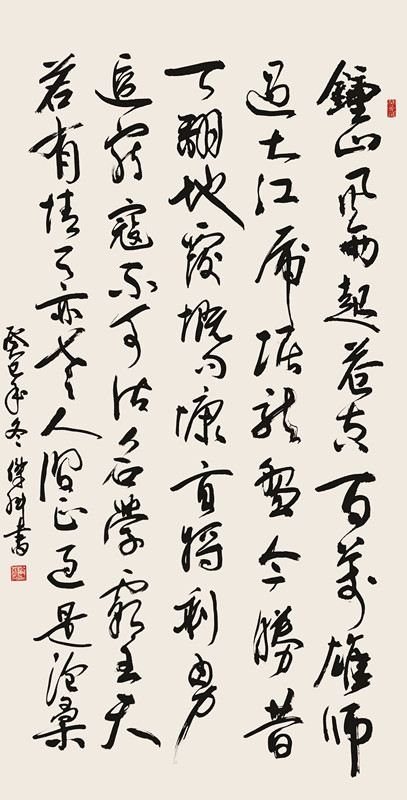 鍾山風雨起蒼黄百萬雄師
過大江虎踞龍盤今勝昔
天翻地覆慨而慷宜將剩勇
追窮寇不可沽名學霸王天
若有情天亦老人間正道是滄桑
癸巳年冬傑書